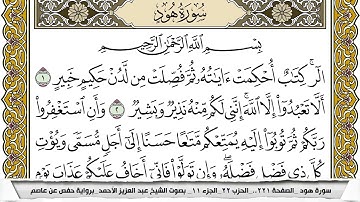 سورة هود
بسم الله الرحمن الرحيم
الٓر ۚ كِتَٰبٌ أُحْكِمَتْ ءَايَٰتُهُۥ ثُمَّ فُصِّلَتْ مِن لَّدُنْ حَكِيمٍ خَبِيرٍ ١
أَلَّا تَعْبُدُوٓا۟ إِلَّا ٱللَّهَ ۚ إِنَّنِى لَكُم مِّنْهُ نَذِيرٌ وَبَشِيرٌ ٢ وَأَنِ ٱسْتَغْفِرُوا۟
رَبَّكُمْ ثُمَّ تُوبُوٓا۟ إِلَيْهِ يُمَتِّعْكُم مَّتَٰعًا حَسَنًا إِلَىٰٓ أَجَلٍ مُّسَمًّى وَيُؤْتِ
كُلَّ ذِى فَضْلٍ فَضْلَهُۥ ۖ وَإِن تَوَلَّوْا۟ فَإِنِّىٓ أَخَافُ عَلَيْكُمْ عَذَابَ يَوْمٍ
سورة هود_ الصفحة ٢٢١_ الحزب ٢٢_ الجزء ١١_ بصوت الشيخ عبد العزيز الأحمد_ برواية حفص عن عاصم